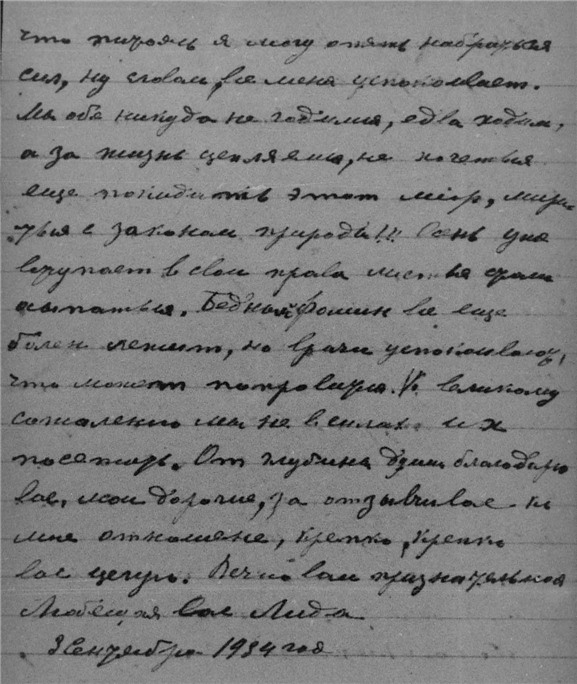 что питаясь я могу опять набраться
сил, ну словом все меня успокаивает.
Мы обе никуда не годимся, едва ходим,
а за жизнь цепляемся, не хочется
еще покидать этот мiр, мири-
ться с законам природы!!! Осень уже
вступает в свои права листья стали
осыпаться. Бедный Фомин все еще
болен лежит, но врачи успокаивают,
что может поправится. К великому
сожалению мы не в силах их
посетить. От глубины души благодарю
вас, мои дорогие, за отзывчивое ко
мне отношене, крепко, крепко
вас целую. Вечно вам признательная
Любящая вас Лида
3 Сентября 1954 год